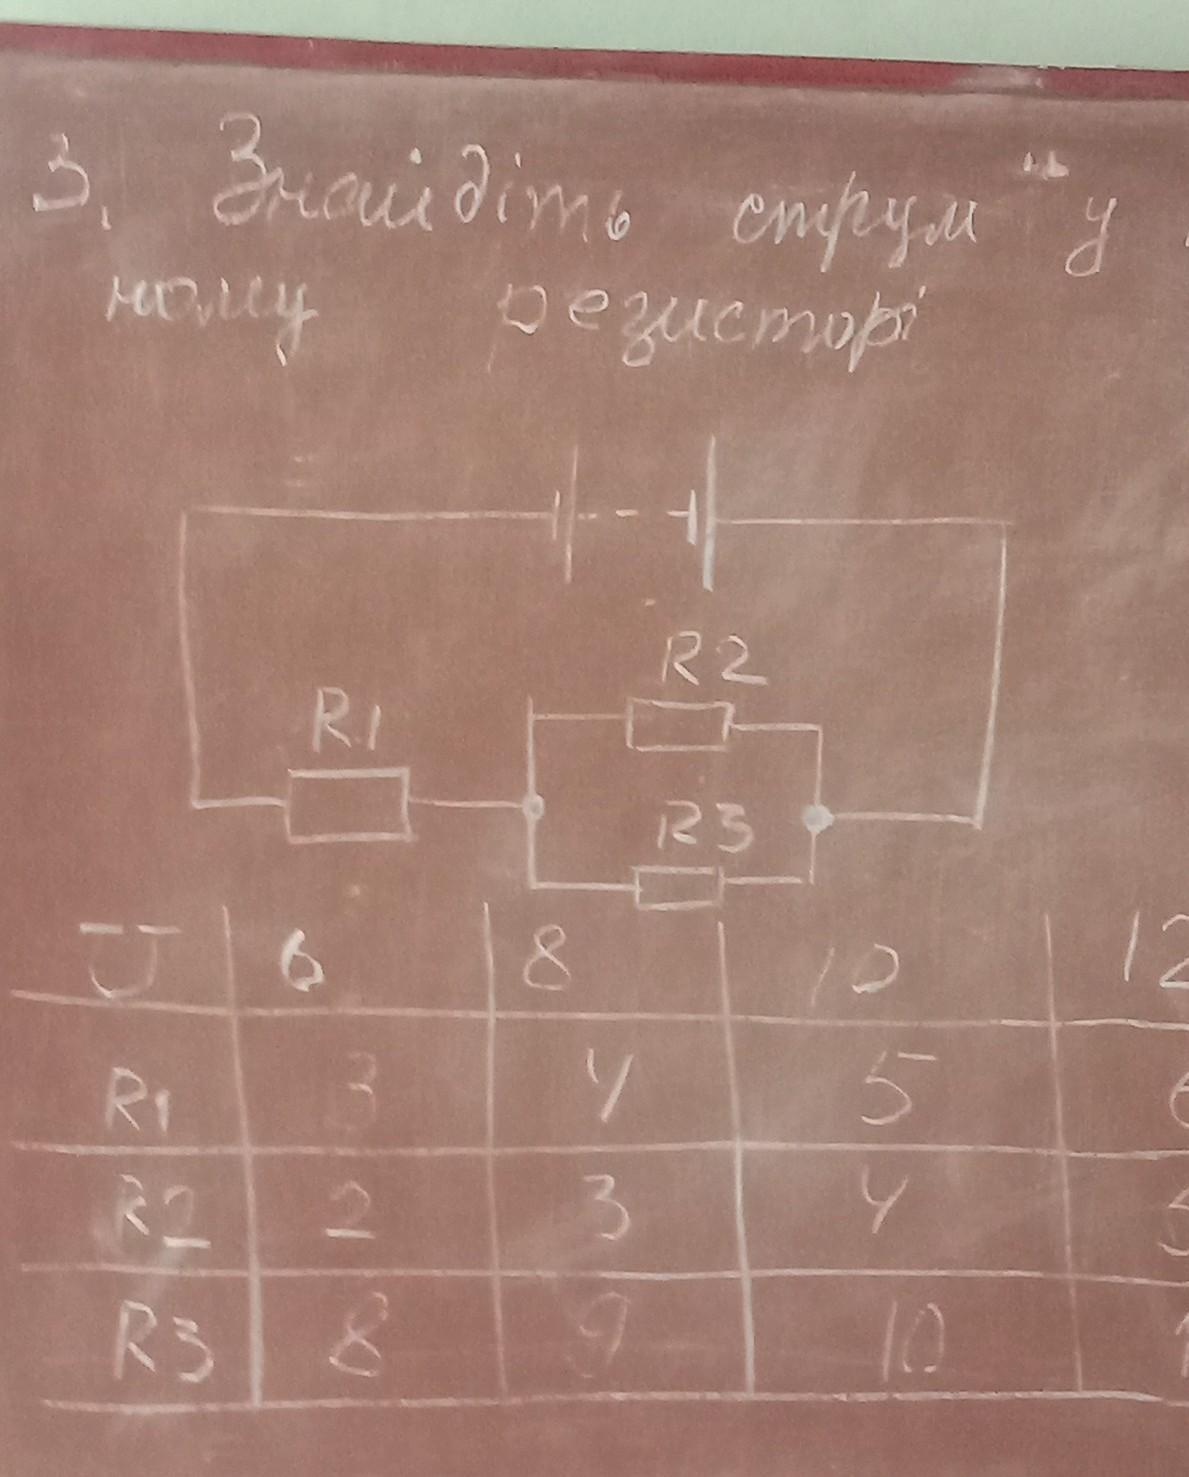 3. Знайдіть струм у
ному резисторі
R2
R1
R3
U 6 8 10 12
R1 3 4 5
R2 2 3 4 5
R3 8 9 10